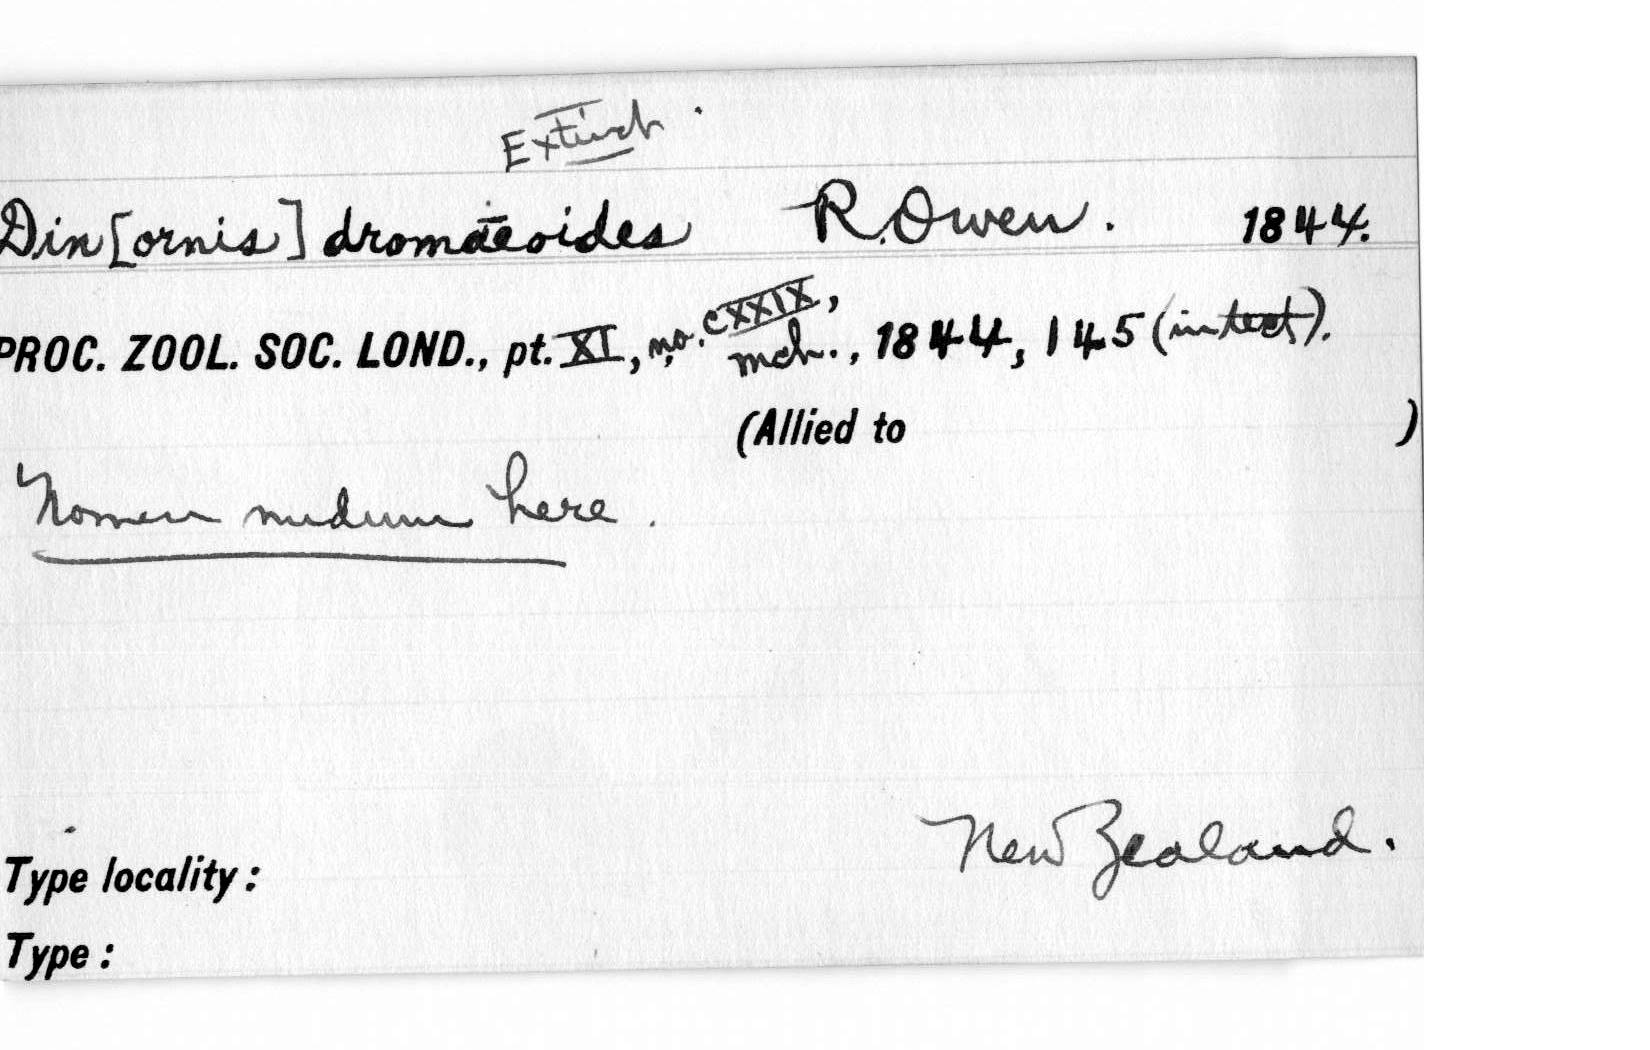 Extinct.
Din[ornis] dromæoides R. Owen. 1844.
PROC. ZOOL. SOC. LOND., pt. XI, no. CXXIX, mch., 1844, 145 (in text).
(Allied to )
Nomen nudum here.
New Zealand.
Type locality:
Type: